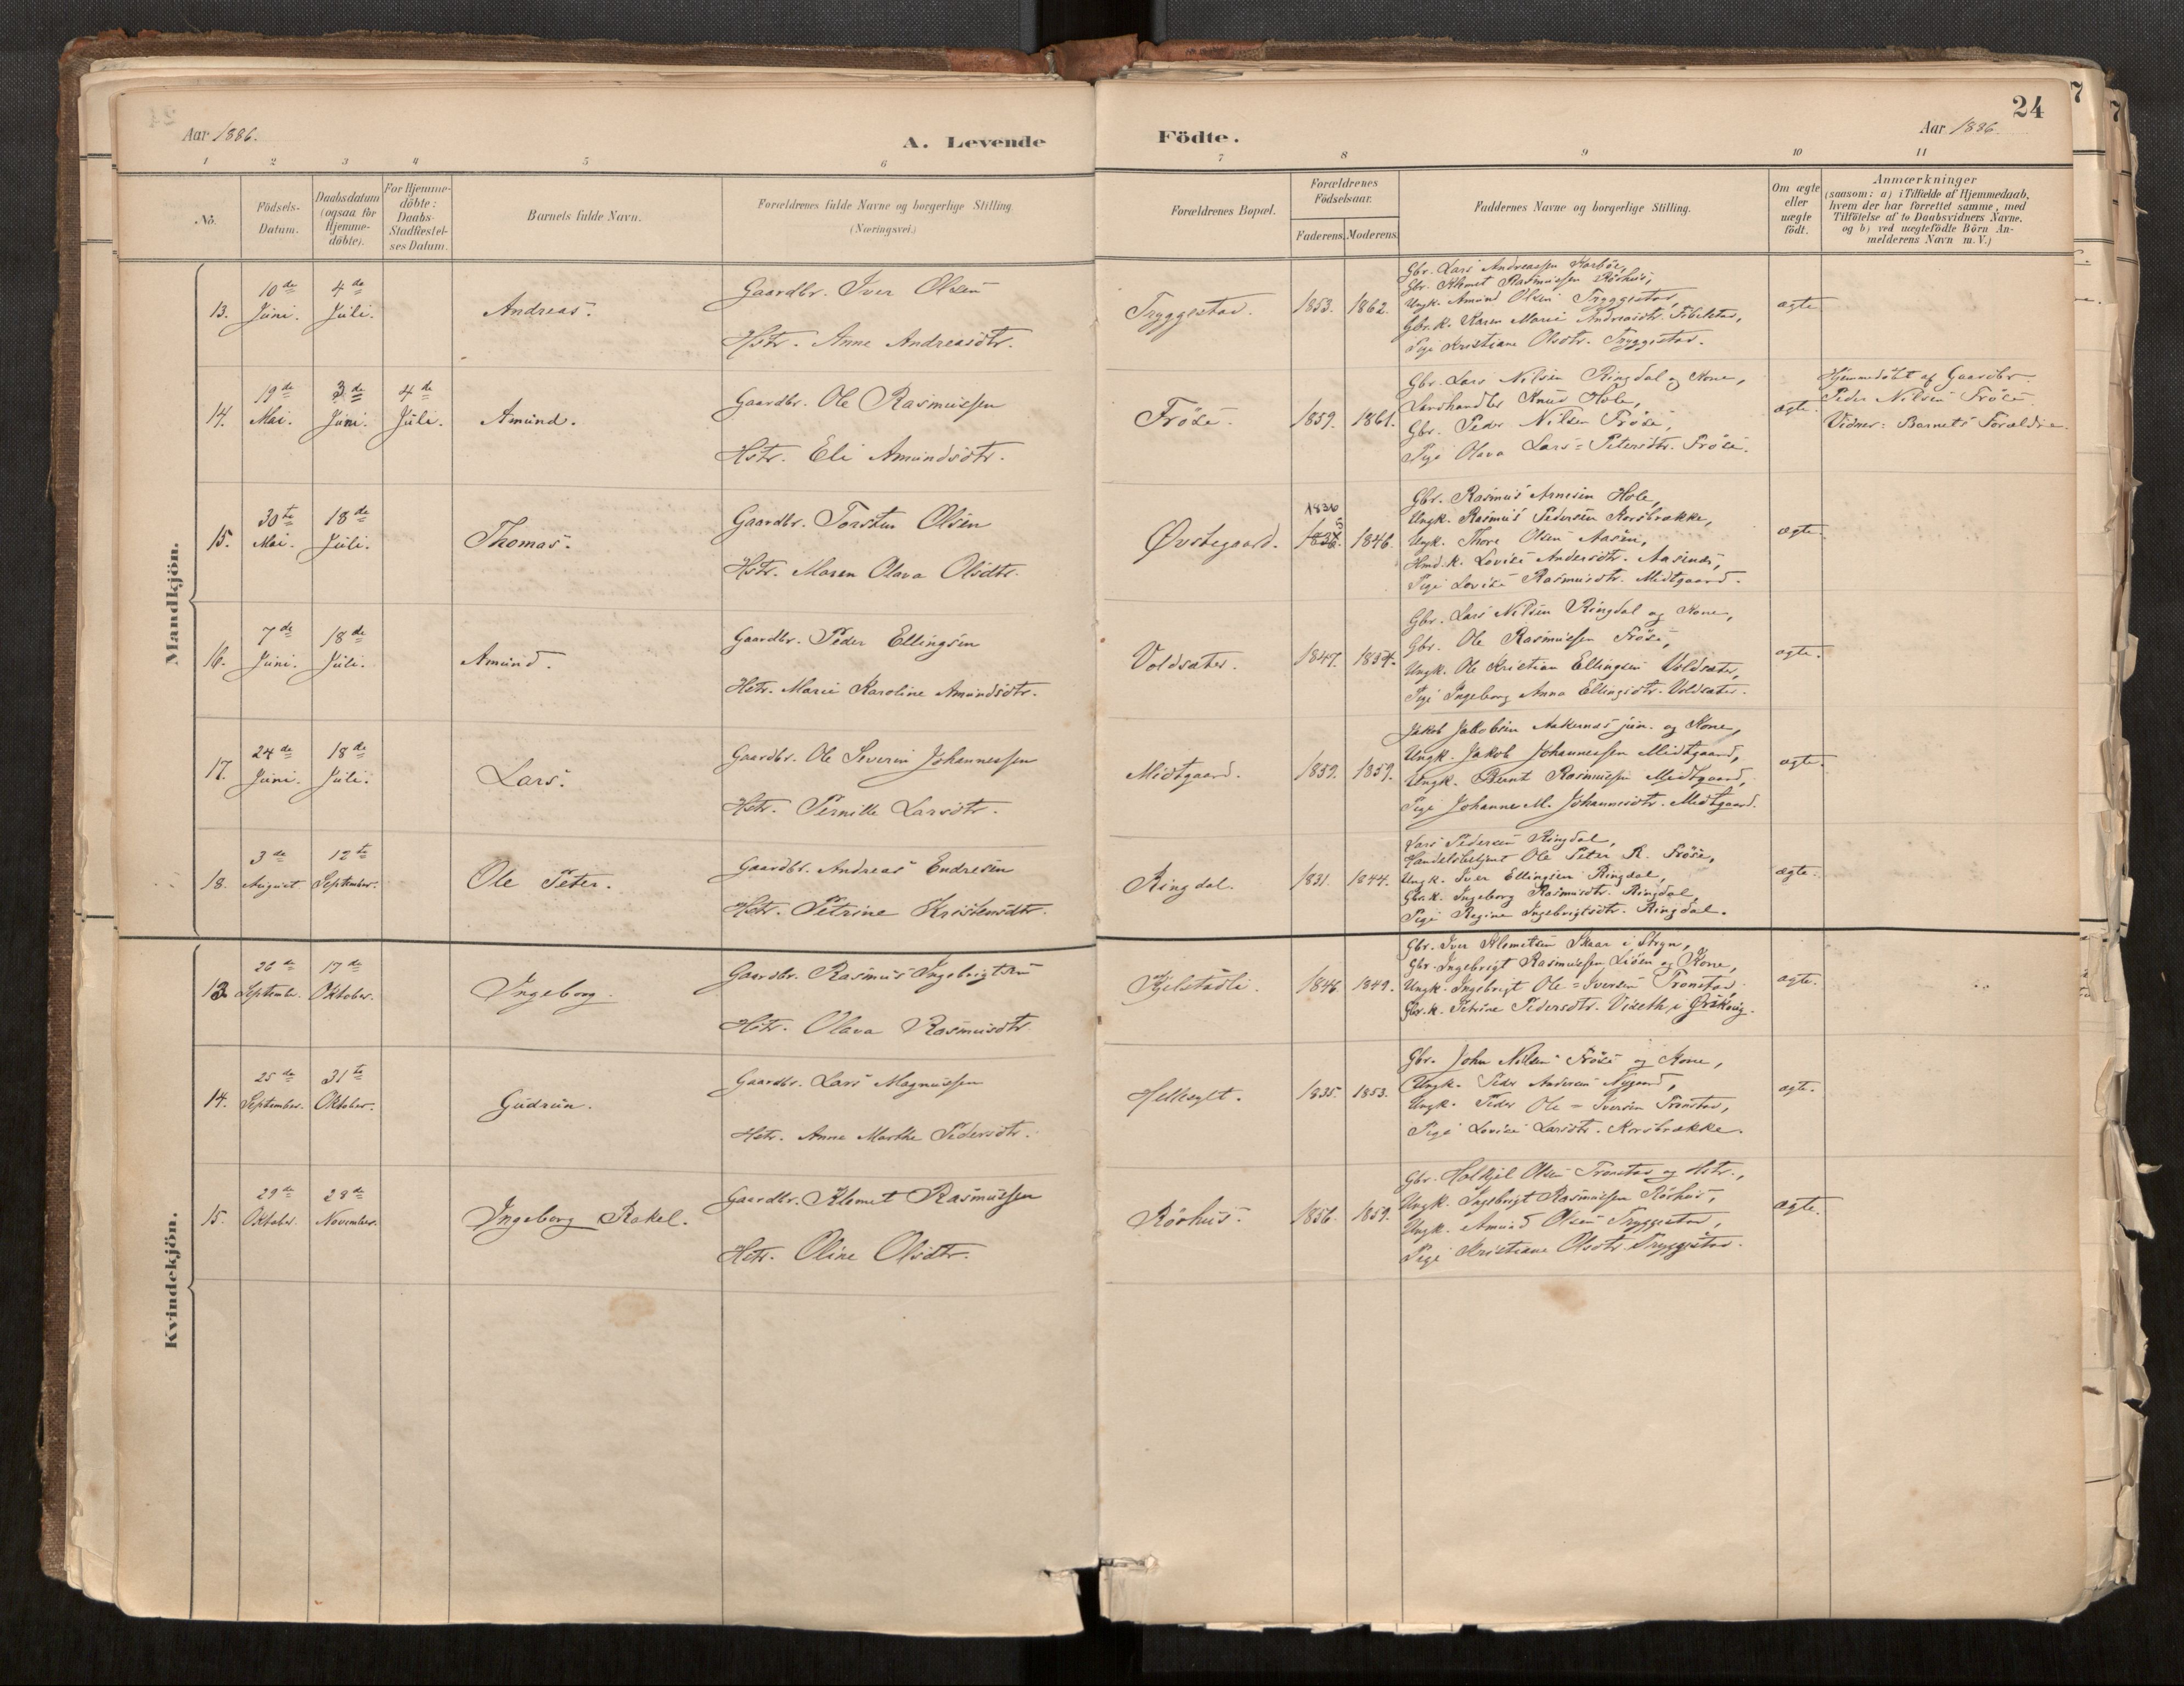 24
Aar 1886.
A. Levende
Födte.
Aar 1886.
1 2 3 4 5 6 7 8 9 10 11
No.
Födsels-Datum.
Daabsdatum (ogsaa for Hjemmedöbte).
For Hjemmedöbte: Daabs-Stadfæstelses Datum.
Barnets fulde Navn.
Forældrenes fulde Navne og borgerlige Stilling.
(Næringsvei.)
Forældrenes Bopæl.
Forældrenes Födselsaar.
Faderens. Moderens.
Faddernes Navne og borgerlige Stilling.
Om ægte eller uægte födt.
Anmærkninger
(saasom: a) i Tilfælde af Hjemmedaab,
hvem der har forrettet samme, med
Tilföielse af to Daabsvidners Navne.
og b) ved uægtefödte Börn An-
melderens Navn m. V.)
Mandkjön.
13. 10de Juni. 4de Juli. Andreas.
Gaardbr. Iver Olsen
Hstr. Anne Andreasdtr.
Tryggestad. 1853. 1862.
Gbr. Lars Andreassen Korsbøe,
Gbr. Klemet Rasmussen Rörhus,
Ungk. Amund Olsen Tryggestad,
Gbr.k. Karen Marie Andreasdtr. Fibelstad,
Pige Kristiane Olsdtr. Tryggestad.
ægte
14. 19de Mai. 3de Juni. 4de Juli. Amund.
Gaardbr. Ole Rasmussen
Hstr. Eli Amundsdtr.
Fröse. 1859. 1861.
Gbr. Lars Nilsen Ringdal og Kone,
Landhandler Knud Hole,
Gbr. Peder Nilsen Fröse,
Pige Olava Lars=Petersdtr. Fröse.
ægte.
Hjemmedöbt af Gaardbr.
Peder Nilsen Fröse.
Vidner: Barnets Forældre.
15. 30te Mai. 18de Juli. Thomas.
Gaardbr. Torsten Olsen
Hstr. Maren Olava Olsdtr.
Øvstegaard. 1836 1846.
Gbr. Rasmus Arnesen Hole,
Ungk. Rasmus Pedersen Korsbrække,
Ungk. Thore Olsen Aasen,
Hmd.k. Lovise Andersdtr. Aasenes,
Pige Lovise Rasmusdtr. Midtgaard.
ægte.
16. 7de Juni. 18de Juli. Amund.
Gaardbr. Peder Ellingsen
Hstr. Marie Karoline Amundsdtr.
Voldsæter. 1847. 1854.
Gbr. Lars Nilsen Ringdal og Kone,
Gbr. Ole Rasmussen Fröse,
Ungk. Ole Kristian Ellingsen Voldsæter,
Pige Ingeborg Anna Ellingsdtr. Voldsæter.
ægte.
17. 24de Juni. 18de Juli. Lars.
Gaardbr. Ole Severin Johannessen
Hstr. Pernille Larsdtr.
Midtgaard. 1859. 1859.
Jakob Jakobsen Aakernes jun. og Kone,
Ungk. Jakob Johannessen Midtgaard,
Ungk. Bernt Rasmussen Midtgaard,
Pige Johanne M. Johannesdtr. Midtgaard.
ægte.
18. 3de August. 12te September. Ole Peter.
Gaardbr. Andreas Endresen
Hstr. Petrine Kristensdtr.
Ringdal. 1831. 1844.
Lars Pedersen Ringdal,
Handelsbetjent Ole Peter R. Fröse,
Ungk. Iver Ellingsen Ringdal,
Gbr.k. Ingeborg Rasmusdtr. Ringdal,
Pige Regine Ingebrigtsdtr. Ringdal.
ægte.
Kvindekjön.
13. 26de September. 17de Oktober. Ingeborg.
Gaardbr. Rasmus Ingebrigtsen
Hstr. Olava Rasmusdtr.
Kjelstadli. 1846. 1849.
Gbr. Iver Klemetsen Skaar i Stryn,
Gbr. Ingebrigt Rasmussen Liöen og Kone,
Ungk. Ingebrigt Ole=Iversen Tronstad,
Gbr.k. Petrine Pedersdtr. Viseth i Ørskoug.
ægte.
14. 25de September. 31te Oktober. Gudrun.
Gaardbr. Lars Magnussen
Hstr. Anne Marthe Pedersdtr.
Hellesylt. 1835. 1853.
Gbr. John Nilsen Fröse og Kone,
Ungk. Peder Andersen Nygaard,
Ungk. Peder Ole=Iversen Tronstad,
Pige Lovise Larsdtr. Korsbrække.
ægte.
15. 29de Oktober. 28de November. Ingeborg Rakel.
Gaardbr. Klemet Rasmussen
Hstr. Oline Olsdtr.
Rörhus. 1856. 1859.
Gbr. Holkjel Olsen Tronstad og Hstr.,
Ungk. Ingebrigt Rasmussen Rörhus,
Ungk. Amund Olsen Tryggestad,
Pige Kristiane Olsdtr. Tryggestad.
ægte.